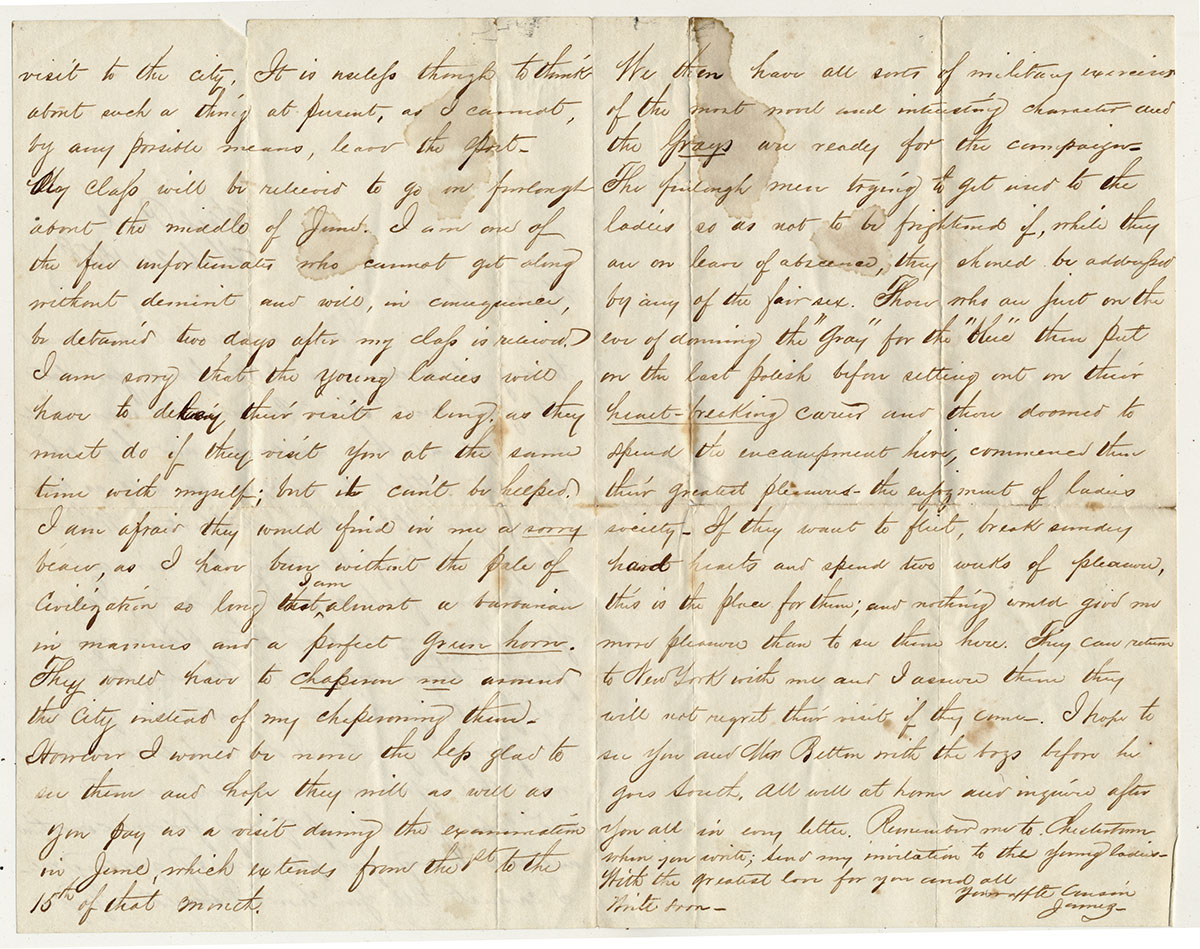 visit to the city, It is useless though to think
about such a thing at present, as I cannot,
by any possible means, leave the Post-
My class will be relieved to go on furlough
about the middle of June. I am one of
the few unfortunates who cannot get along
without demirit and will, in consequence,
be detained two days after my class is relieved.
I am sorry that the young ladies will
have to delay their visit so long, as they
must do if they visit you at the same
time with myself; but it can't be helped.
I am afraid they would find in me a sorry
beau, as I have been without the pale of
Civilization so long that I am almost a barbarian
in manners and a perfect green horn.
They would have to chaperon me around
the City instead of my chaperoning them-
However I would be none the less glad to
see them and hope they will as well as
you pay us a visit during the examination
in June, which extends from the 1st to the
15th of that month.
We then have all sorts of military exercises
of the most novel and interesting character and
the Grays are ready for the campaign-
The furlough men trying to get used to the
ladies so as not to be frightened if, while they
are on leave of abscence, they should be addressed
by any of the fair sex. Those who are just on the
eve of doming the "Gray" for the "blue" then put
on the last polish before setting out on their
heart-breaking career and those doomed to
spend the encampment here, commence then
their greatest pleasure- the enjoyment of ladies
society- If they want to flirt, break sundry
hard hearts and spend two weeks of pleasure,
this is the place for them; and nothing would give me
more pleasure than to see them here. They can return
to New York with me and I assure them they
will not regret their visit if they come-. I hope to
see you and Mr Betton with the boys before he
goes South. All well at home and inquire after
you all in every letter. Remember me to Chestertown
when you write; send my invitation to the young ladies-
With the greatest love for you and all
Your affte Cousin
Write soon-
James-